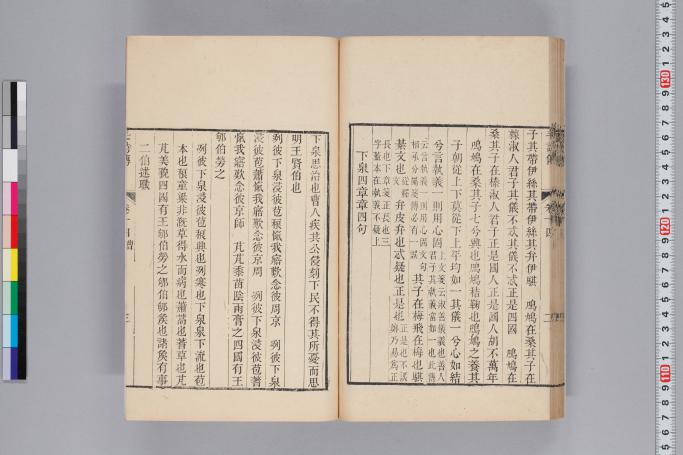 子其帶伊絲其帶伊絲其弁伊騏　鳲鳩在桑其子在
榛淑人君子其儀不忒其儀不忒正是四國　鳲鳩在
桑其子在榛淑人君子正是國人正是國人胡不萬年
鳲鳩在桑其子七兮興也鳲鳩秸鞠也鳲鳩之養其
子朝從上下莫從下上平均如一其儀一兮心如結
兮言執義一則用心固
其子在梅飛在梅也騏
綦文也
弁皮弁也忒疑也正是也
下泉四章章四句
下泉思治也曹人疾其公侵刻下民不得其所憂而思
明王賢伯也
冽彼下泉浸彼苞稂愾我寤歎念彼周京　冽彼下泉
浸彼苞蕭愾我寤歎念彼京周　冽彼下泉浸彼苞蓍
愾我寤歎念彼京師　芃芃黍苗陰雨膏之四國有王
郇伯勞之
冽彼下泉浸彼苞稂興也冽寒也下泉泉下流也苞
本也稂童粱非溉草得水而病也蕭蒿也蓍草也芃
芃美貌四國有王郇伯勞之郇伯郇侯也諸侯有事
二伯述職